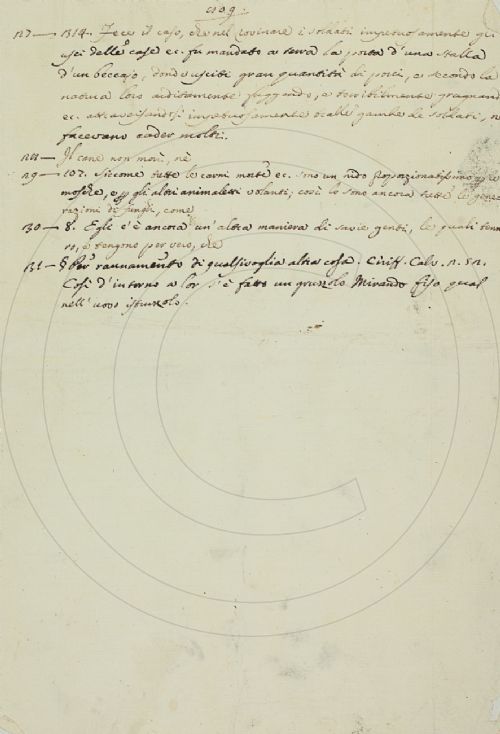 127 — 1314. Fece il caso, che nel rovinare i soldati impetuosamente gli
usci delle case ec. fu mandato a terra la porta d'una stalla
d'un beccajo, donde usciti gran quantità di porci, e secondo la
natura loro arditamente fuggendo, e terribilmente grugnand
ec. attraversandosi impetuosamente tralle gambe de' soldati, n
facevano cader molti.
128 — Il cane non morì, nè
29 — 107. Siccome tutte le carni morte ec. sono un nido proporzionatissimo
mosche, e gli altri animaletti volanti; così lo sono ancora tutte le gene
razioni de' funghi, come
130 — 8. Egli c'è ancora un'altra maniera di savie genti, le quali tenn
ro, e tengono per vero, che
131 — § Per raunamento di qualsivoglia altra cosa. Ciriff. Calv.
Così d'intorno a lor s'è fatto un gruzzolo Mirando fiso, qual
nell'uovo